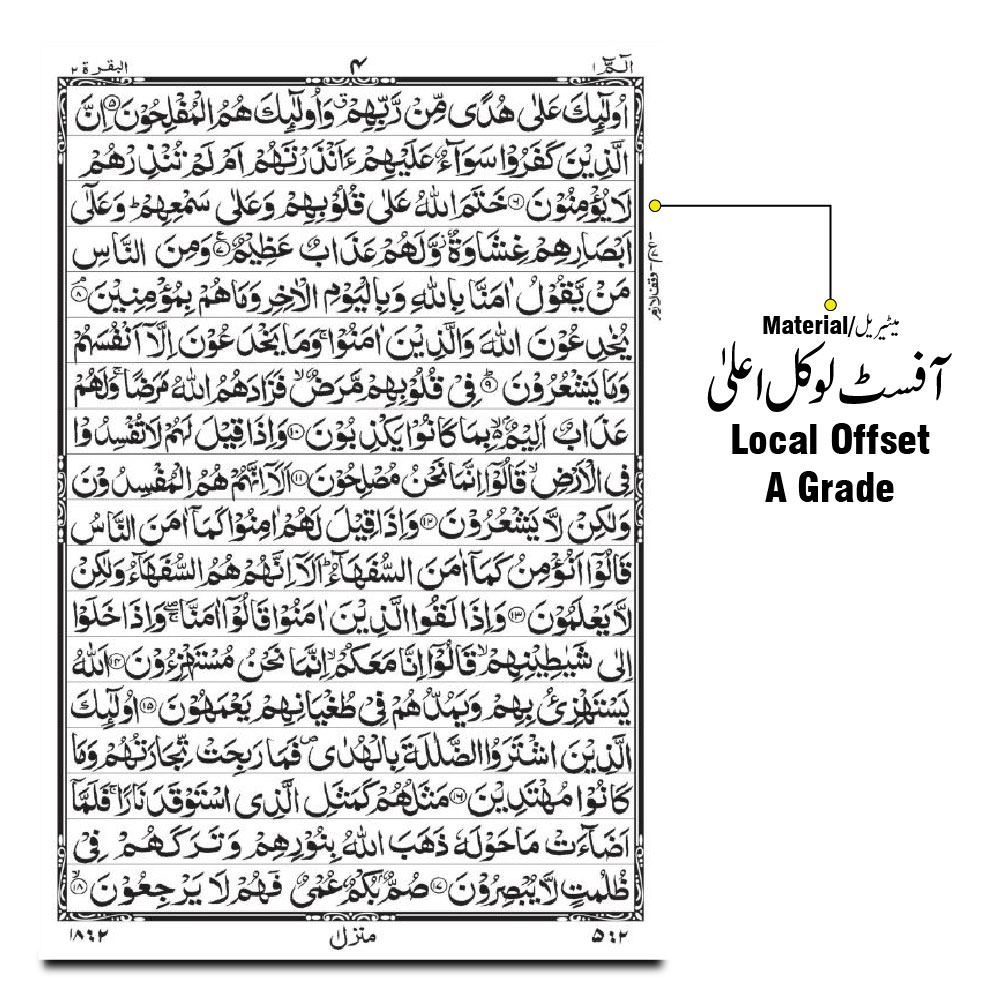 الٓمّٓ ١
٤
البقرة ٢
اُولٰٓئِكَ عَلٰى هُدًى مِّنْ رَّبِّهِمْ ۙ وَاُولٰٓئِكَ هُمُ الْمُفْلِحُوْنَ ۝٥ اِنَّ
الَّذِيْنَ كَفَرُوْا سَوَآءٌ عَلَيْهِمْ ءَاَنْذَرْتَهُمْ اَمْ لَمْ تُنْذِرْهُمْ
لَا يُؤْمِنُوْنَ ۝٦ خَتَمَ اللّٰهُ عَلٰى قُلُوْبِهِمْ وَعَلٰى سَمْعِهِمْ ؕ وَعَلٰٓى
اَبْصَارِهِمْ غِشَاوَةٌ ؗ وَّلَهُمْ عَذَابٌ عَظِيْمٌ ۝٧ وَمِنَ النَّاسِ
مَنْ يَّقُوْلُ اٰمَنَّا بِاللّٰهِ وَبِالْيَوْمِ الْاٰخِرِ وَمَا هُمْ بِمُؤْمِنِيْنَ ۝٨
يُخٰدِعُوْنَ اللّٰهَ وَالَّذِيْنَ اٰمَنُوْا ۚ وَمَا يَخْدَعُوْنَ اِلَّاۤ اَنْفُسَهُمْ
وَمَا يَشْعُرُوْنَ ۝٩ فِيْ قُلُوْبِهِمْ مَّرَضٌ ۙ فَزَادَهُمُ اللّٰهُ مَرَضًا ۚ وَلَهُمْ
عَذَابٌ اَلِيْمٌۢ ۙ بِمَا كَانُوْا يَكْذِبُوْنَ ۝١٠ وَاِذَا قِيْلَ لَهُمْ لَا تُفْسِدُوْا
فِى الْاَرْضِ ۙ قَالُوْۤا اِنَّمَا نَحْنُ مُصْلِحُوْنَ ۝١١ اَلَاۤ اِنَّهُمْ هُمُ الْمُفْسِدُوْنَ
وَلٰكِنْ لَّا يَشْعُرُوْنَ ۝١٢ وَاِذَا قِيْلَ لَهُمْ اٰمِنُوْا كَمَاۤ اٰمَنَ النَّاسُ
قَالُوْۤا اَنُؤْمِنُ كَمَاۤ اٰمَنَ السُّفَهَآءُ ؕ اَلَاۤ اِنَّهُمْ هُمُ السُّفَهَآءُ وَلٰكِنْ
لَّا يَعْلَمُوْنَ ۝١٣ وَاِذَا لَقُوا الَّذِيْنَ اٰمَنُوْا قَالُوْۤا اٰمَنَّا ۖۚ وَاِذَا خَلَوْا
اِلٰى شَيٰطِيْنِهِمْ ۙ قَالُوْۤا اِنَّا مَعَكُمْ ۙ اِنَّمَا نَحْنُ مُسْتَهْزِءُوْنَ ۝١٤ اَللّٰهُ
يَسْتَهْزِئُ بِهِمْ وَيَمُدُّهُمْ فِيْ طُغْيَانِهِمْ يَعْمَهُوْنَ ۝١٥ اُولٰٓئِكَ
الَّذِيْنَ اشْتَرَوُا الضَّلٰلَةَ بِالْهُدٰى ۪ فَمَا رَبِحَتْ تِّجَارَتُهُمْ وَمَا
كَانُوْا مُهْتَدِيْنَ ۝١٦ مَثَلُهُمْ كَمَثَلِ الَّذِى اسْتَوْقَدَ نَارًا ۚ فَلَمَّاۤ
اَضَآءَتْ مَا حَوْلَهٗ ذَهَبَ اللّٰهُ بِنُوْرِهِمْ وَتَرَكَهُمْ فِيْ
ظُلُمٰتٍ لَّا يُبْصِرُوْنَ ۝١٧ صُمٌّۢ بُكْمٌ عُمْيٌ فَهُمْ لَا يَرْجِعُوْنَ ۙ ۝١٨
٥ : ٢
منزل ١
١٨ : ٢
Material/میٹیریل
آفسٹ لوکل اعلیٰ
Local Offset
A Grade